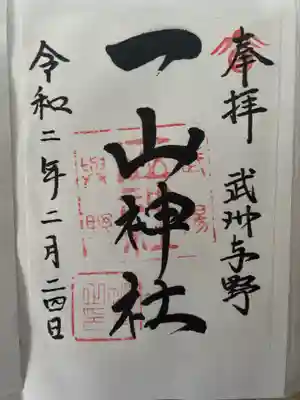 奉拝 武州与野
一山神社
令和二年二月二四日